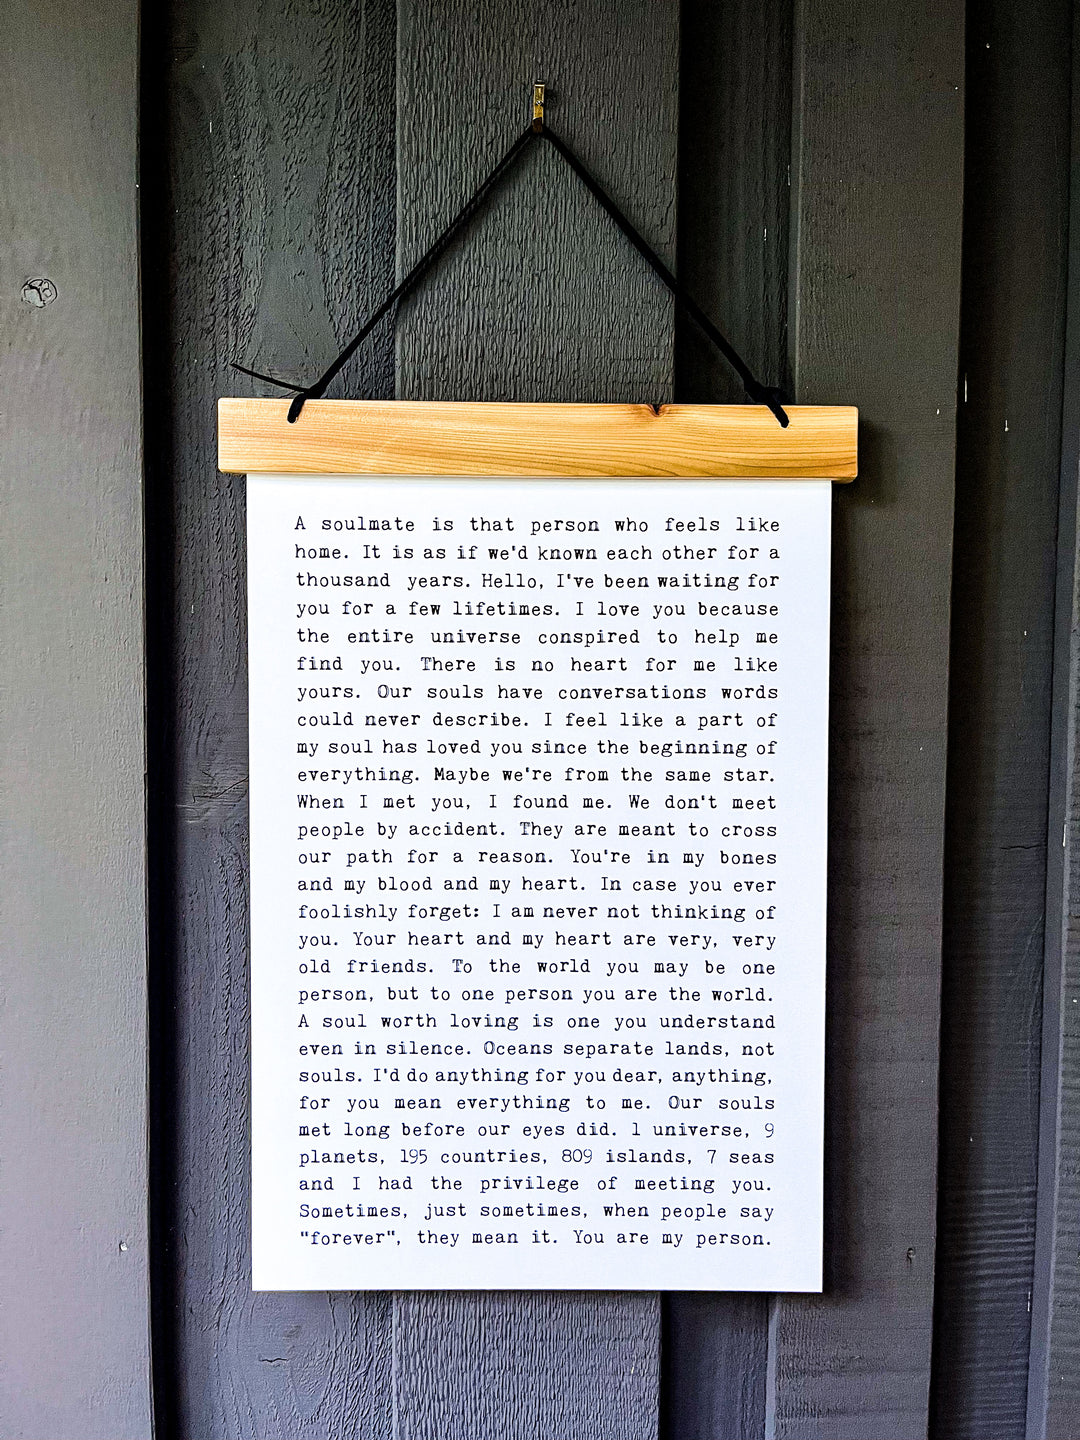 A soulmate is that person who feels like
home. It is as if we'd known each other for a
thousand years. Hello, I've been waiting for
you for a few lifetimes. I love you because
the entire universe conspired to help me
find you. There is no heart for me like
yours. Our souls have conversations words
could never describe. I feel like a part of
my soul has loved you since the beginning of
everything. Maybe we're from the same star.
When I met you, I found me. We don't meet
people by accident. They are meant to cross
our path for a reason. You're in my bones
and my blood and my heart. In case you ever
foolishly forget: I am never not thinking of
you. Your heart and my heart are very, very
old friends. To the world you may be one
person, but to one person you are the world.
A soul worth loving is one you understand
even in silence. Oceans separate lands, not
souls. I'd do anything for you dear, anything,
for you mean everything to me. Our souls
met long before our eyes did. 1 universe, 9
planets, 195 countries, 809 islands, 7 seas
and I had the privilege of meeting you.
Sometimes, just sometimes, when people say
"forever", they mean it. You are my person.